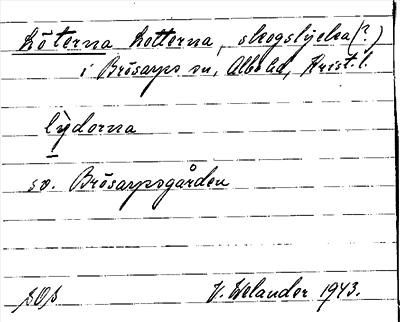 Löterna Lotterna, skogslycka(?)
i Brösarps sn, Albo hd, Krist. l.
lỳdorna
sv. Brösarpsgården
V. Welander 1943.